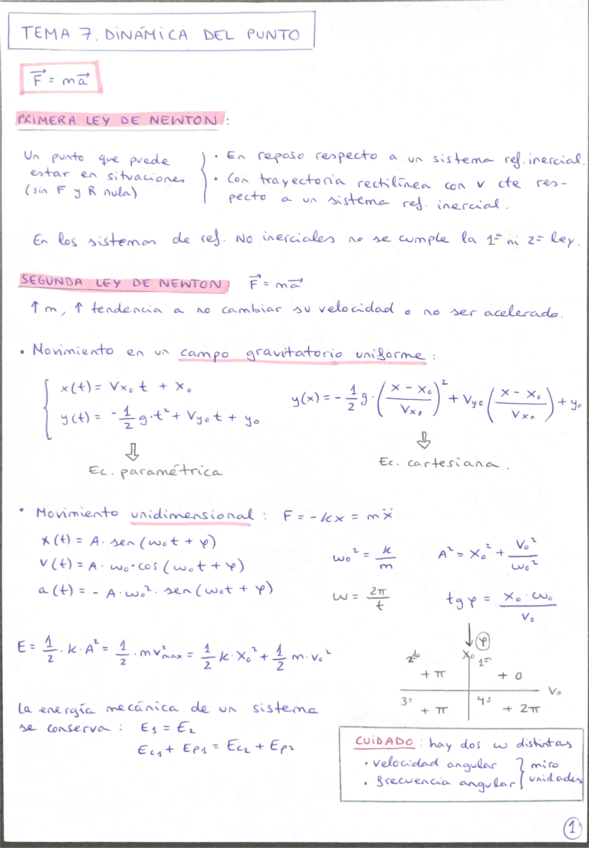 TEMA 7. DINÁMICA DEL PUNTO
F⃗ = ma⃗
PRIMERA LEY DE NEWTON:
Un punto que puede estar en situaciones (sin F y R nula)
· En reposo respecto a un sistema ref. inercial.
· Con trayectoria rectilínea con v cte res-
pecto a un sistema ref. inercial.
En los sistemas de ref. No inerciales no se cumple la 1ª ni 2ª ley.
SEGUNDA LEY DE NEWTON: F⃗ = ma⃗
↑ m, ↑ tendencia a no cambiar su velocidad o no ser acelerado.
• Movimiento en un campo gravitatorio uniforme:
x(t) = Vx₀ t + x₀
y(t) = -1/2 g·t² + Vy₀ t + y₀
⇓
Ec. paramétrica
y(x) = -1/2 g · ((x - x₀)/Vx₀)² + Vy₀ ((x - x₀)/Vx₀) + y₀
⇓
Ec. cartesiana.
• Movimiento unidimensional: F = -kx = mẍ
x(t) = A · sen(ω₀t + φ)
v(t) = A · ω₀ · cos(ω₀t + φ)
a(t) = -A · ω₀² · sen(ω₀t + φ)
ω₀² = k/m
A² = x₀² + V₀²/ω₀²
ω = 2π/t
tg φ = x₀·ω₀/V₀
E = 1/2 · k · A² = 1/2 · mv²max = 1/2 k · x₀² + 1/2 m · v₀²
↓ φ
x₀
2º 1º
+ π + 0
V₀
3º 4º
+ π + 2π
La energía mecánica de un sistema
se conserva: E₁ = E₂
Ec₁ + Ep₁ = Ec₂ + Ep₂
CUIDADO: hay dos ω distintas
• velocidad angular
• frecuencia angular
miro
unidades
1